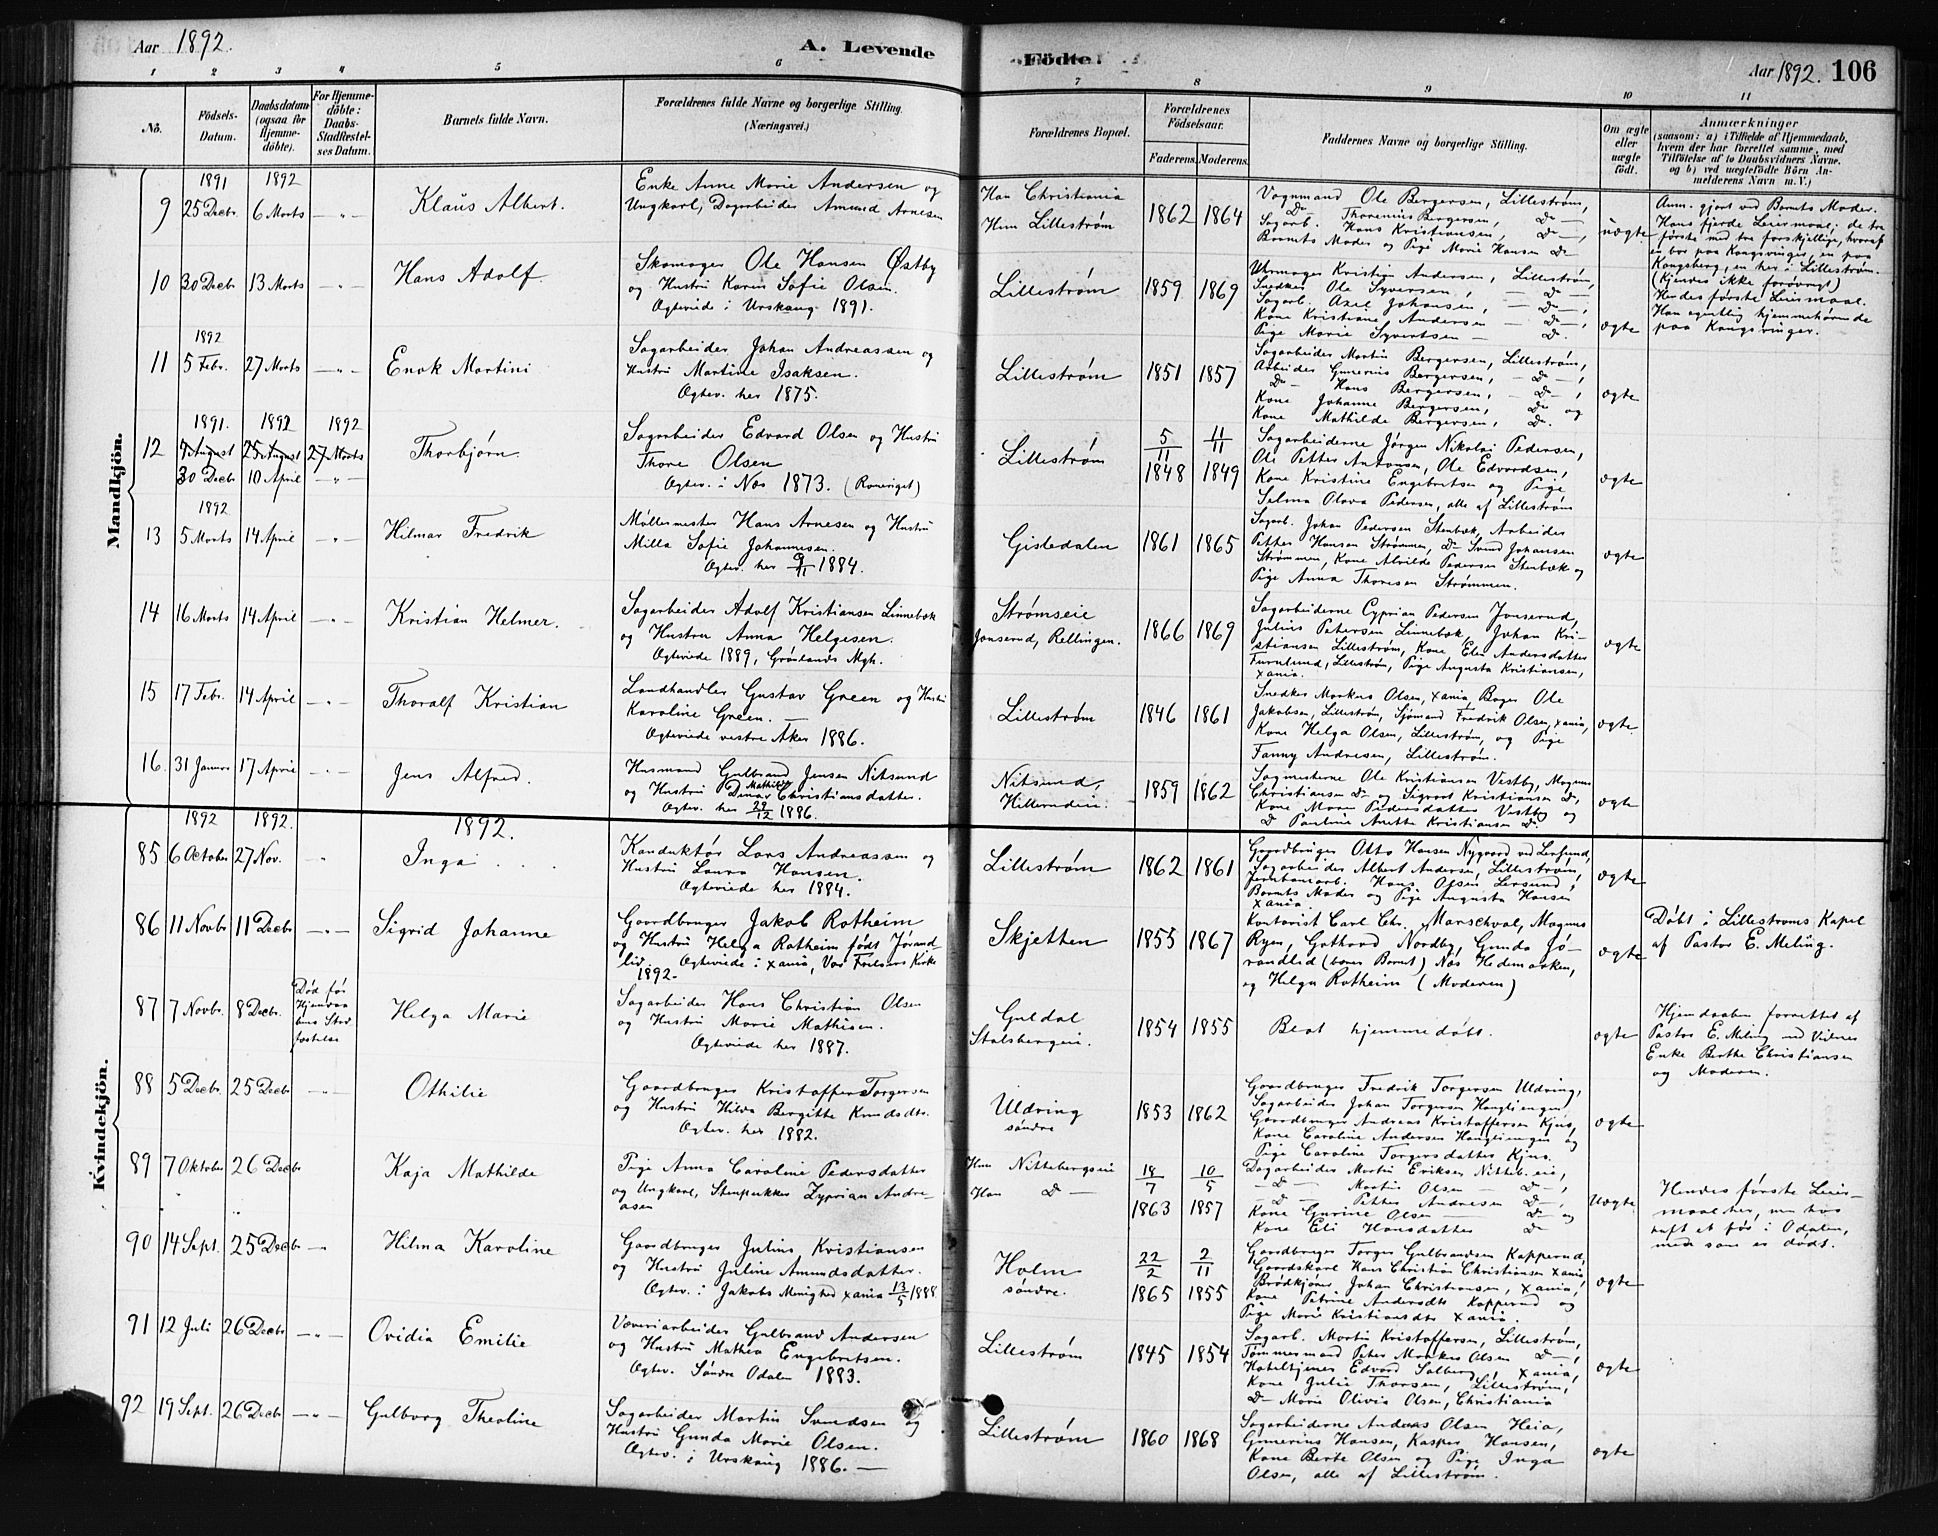 Aar 1892.
A. Levende
Födte.
Aar 1892. 106
1 2 3 4 5 6 7 8 9 10 11
No.
Födsels-
Datum.
Daabsdatum
(ogsaa for
Hjemme-
döbte).
For Hjemme-
döbte:
Daabs-
Stadfæstel-
ses Datum.
Barnets fulde Navn.
Forældrenes fulde Navne og borgerlige Stilling.
(Næringsvei.)
Forældrenes Bopæl.
Forældrenes
Födselsaar.
Faderens. Moderens.
Faddernes Navne og borgerlige Stilling.
Om ægte
eller
uægte
födt.
Anmærkninger
(saasom: a) i Tilfælde af Hjemmedaab,
hvem der har forrettet samme, med
Tilföielse af to Daabsvidners Navne,
og b) ved uægtefödte Börn An-
melderens Navn m. V.)
Mandkjön.
1891 1892
9 25 Decbr. 6 Marts — " —
Klaus Albert.
Enke Anne Marie Andersen og
Ungkarl, Dagarbeider Amund Arnesen
Han Christiania
Hun Lillestrøm
1862 1864
Vognmand Ole Bergersen, Lillestrøm,
Do Thorenius Bergersen, Do —,
Sagarb. Hans Kristiansen, Do —,
Barnets Moder og Pige Marie Hansen Do
uægte
Anm. gjort ved Barnets Moder.
Hans fjerde Leiermaal; de tre
første med tre forskjellige, hvoraf
en bor paa Kongsvinger, en paa
Kongsberg, en her i Lillestrøm.
(Kjendes ikke forøvrigt)
Hendes første Leiermaal.
Han egentlig hjemmehørende
paa Kongsvinger.
10 30 Decbr 13 Marts — " —
Hans Adolf.
Skomager Ole Hansen Østby
og Hustru Karen Sofie Olsen.
Ægteviede i Urskoug 1891.
Lillestrøm
1859 1869
Uhrmager Kristian Andersen, Lillestrøm,
Snedker Ole Syversen, — Do —
Sagarb. Axel Johansen, — Do —,
Kone Kristiane Andersen — Do —,
Pige Marie Syvertsen — Do.
ægte
1892
11 5 Febr. 27 Marts — " —
Enok Martini
Sagarbeider Johan Andreassen og
Hustru Martine Isaksen.
Ægtev. her 1875.
Lillestrøm
1851 1857
Sagarbeider Martin Bergersen, Lillestrøm,
Arbeider Gunerius Bergersen, — Do —,
Do — Hans Bergersen, — Do —,
Kone Johanne Bergersen, Do og
Kone Mathilde Bergersen, Do.
ægte
1891. 1892 1892
12 7 August 25 August 27 Marts
30 Decbr 10 April — " —
Thorbjørn.
Sagarbeider Edvard Olsen og Hustru
Thore Olsen
Ægtev. i Næs 1873. (Romeriget)
Lillestrøm
5/11 11/11
1848 1849
Sagarbeiderne Jørgen Nikolai Pedersen,
Ole Petter Antonsen, Ole Edvardsen,
Kone Kristine Engebretsen og Pige
Selma Olava Pedersen, alle af Lillestrøm
ægte
1892
13 5 Marts 14 April — " —
Hilmar Fredrik
Møllermester Hans Arnesen og Hustru
Milla Sofie Johannesen.
Ægtev. her 9/11 1884.
Gisledalen
1861 1865
Sagarb. Johan Pedersen Stenbæk, Arbeider
Petter Hansen Strømmen, Do Svend Johansen
Strømmen, Kone Alvilde Pedersen Stenbæk og
Pige Anna Thoresen Strømmen.
ægte
14 16 Marts 14 April — " —
Kristian Helmer.
Sagarbeider Adolf Kristiansen Linnebæk
og Hustru Anna Helgesen.
Ægteviede 1889, Grønlands Mgh.
Strømseie
Jonserud, Rellingen.
1866 1869
Sagarbeiderne Cyprian Pedersen Jonserud,
Julius Petersen Linnebæk, Johan Kri-
stiansen Lillestrøm, Kone Eli Andersdatter
Furulund, Lillestrøm, Pige Augusta Kristiansen,
Xania.
ægte
15 17 Febr. 14 April — " —
Thoralf Kristian
Landhandler Gustav Green og Hustru
Karoline Green. —
Ægteviede vestre Aker 1886.
Lillestrøm
1846 1861
Snedker Markus Olsen, Xania, Bager Ole
Jakobsen, Lillestrøm, Sjømand Fredrik Olsen, Xania,
Kone Helga Olsen, Lillestrøm, og Pige
Fanny Andresen, Lillestrøm.
ægte
16. 31 Januar 17 April — " —
Jens Alfred.
Husmand Gulbrand Jensen Nitsund
og Hustru Dina Mathilde Christiansdatter.
Ægtev. her 29/12 1886.
Nitsund,
1859 1862
Sagmesterne Ole Kristiansen Vestby, Magnus
Christiansen Do og Sigvart Kristiansen Do,
Kone Maren Pedersdatter Vestby og
Do Pauline Anette Kristiansen Do.
ægte
Kvindekjön.
1892 1892. 1892.
85 6 October 27 Nov. "
Inga
Konduktør Lars Andreassen og
Hustru Laura Hansen.
Ægteviede her 1884.
Lillestrøm
1862 1861
Gaardbruger Otto Hansen Nygaard ved Lersund,
Sagarbeider Albert Andersen, Lillestrøm,
Jernbanearb. Hans Olsen Lersund,
Barnets Moder og Pige Augusta Hansen
Xania.
ægte
86 11 Novbr 11 Decbr — " —
Sigrid Johanne
Gaardbruger Jakob Rotheim
og Hustru Helga Rotheim født Jørand-
lid. Ægteviede i Xania, Vor Frelsers Kirke
1892.
Skjetten
1855 1867
Kontorist Carl Chr. Marschval, Magnus
Ryen, Gothard Nordby, Gunda Jø-
randlid (barer Barnet) Næs Hedemarken,
og Helga Rotheim (Moderen)
ægte
Døbt i Lillestrøms Kapel
af Pastor E. Meling.
87 7 Novbr. 8 Decbr.
Død før
Hjemdaa
bens Stad
fæstelse
Helga Marie
Sagarbeider Hans Christian Olsen
og Hustru Marie Mathisen.
Ægteviede her 1887.
Guldal
Stalsbergeie.
1854 1855
Blot hjemmedøbt.
ægte
Hjemdaaben forrettet af
Pastor E. Meling med Vidner
Enke Berthe Christiansen
og Moderen.
88 5 Decbr 25 Decbr — " —
Othilie
Gaardbruger Kristoffer Torgersen
og Hustru Hilda Bergitte Knudsdtr.
Ægtev. her 1882.
Uldring
søndre
1853 1862
Gaardbruger Fredrik Torgersen Uldring,
Sagarbeider Johan Torgersen Hauglienger,
Gaardbruger Andreas Kristoffersen Kjus,
Kone Caroline Andersen Hauglienger og
Pige Caroline Torgersdatter Kjus.
ægte
89 7 Oktober 26 Decbr
Kaja Mathilde
Pige Anna Caroline Pedersdatter
og Ungkarl, Stenpukker Zyprian Andre-
asen
Hun Nittebergseie
Han Do —
18/7 10/5
1863 1857
Dagarbeider Martin Eriksen Nitteb. eie,
— Do — Martin Olsen — Do —,
— Do — Petter Andresen Do —,
Kone Gurine Olsen — Do og
Kone Eli Hansdatter Do
Uægte
Hendes første Leier-
maal her, men hos
haft et før i Odalen,
med som er dødt.
90 14 Sept. 25 Decbr — " —
Hilma Karoline
Gaardbruger Julius Kristiansen
og Hustru Juline Amundsdatter.
Ægtev. i Jakobs Menighed Xania 13/5 1888
Holm
søndre.
22/2 2/11
1865 1855
Gaardbruger Torger Gulbrandsen Kapperud,
Gaardskarl Hans Christian Christiansen Xania,
Brødkjører Johan Christiansen, Xania,
Kone Petrine Andersdtr Kapperud og
Pige Marie Kristiansdtr Xania.
ægte
91 12 Juli 26 Decbr — " —
Ovidia Emilie
Væveriarbeider Gulbrand Andersen
og Hustru Mathea Engebretsen.
Ægtev. Søndre Odalen 1883.
Lillestrøm
1845 1854
Sagarb. Martin Kristoffersen, Lillestrøm,
Tømmermand Peter Markus Olsen Do —,
Hoteltjener Edvard Solberg, Xania,
Kone Julie Thorsen, Lillestrøm,
Do Marie Olivia Olsen, Christiania
ægte
92 19 Sept. 26 Decbr — " —
Gulborg Theoline
Sagarbeider Martin Svendsen og
Hustru Gunda Marie Olsen.
Ægtev. i Urskoug 1886. —
Lillestrøm
1860 1868
Sagarbeiderne Andreas Olsen Heia,
Gunerius Hansen, Kasper Hansen,
Kone Berte Olsen og Pige Inga
Olsen, alle af Lillestrøm.
ægte